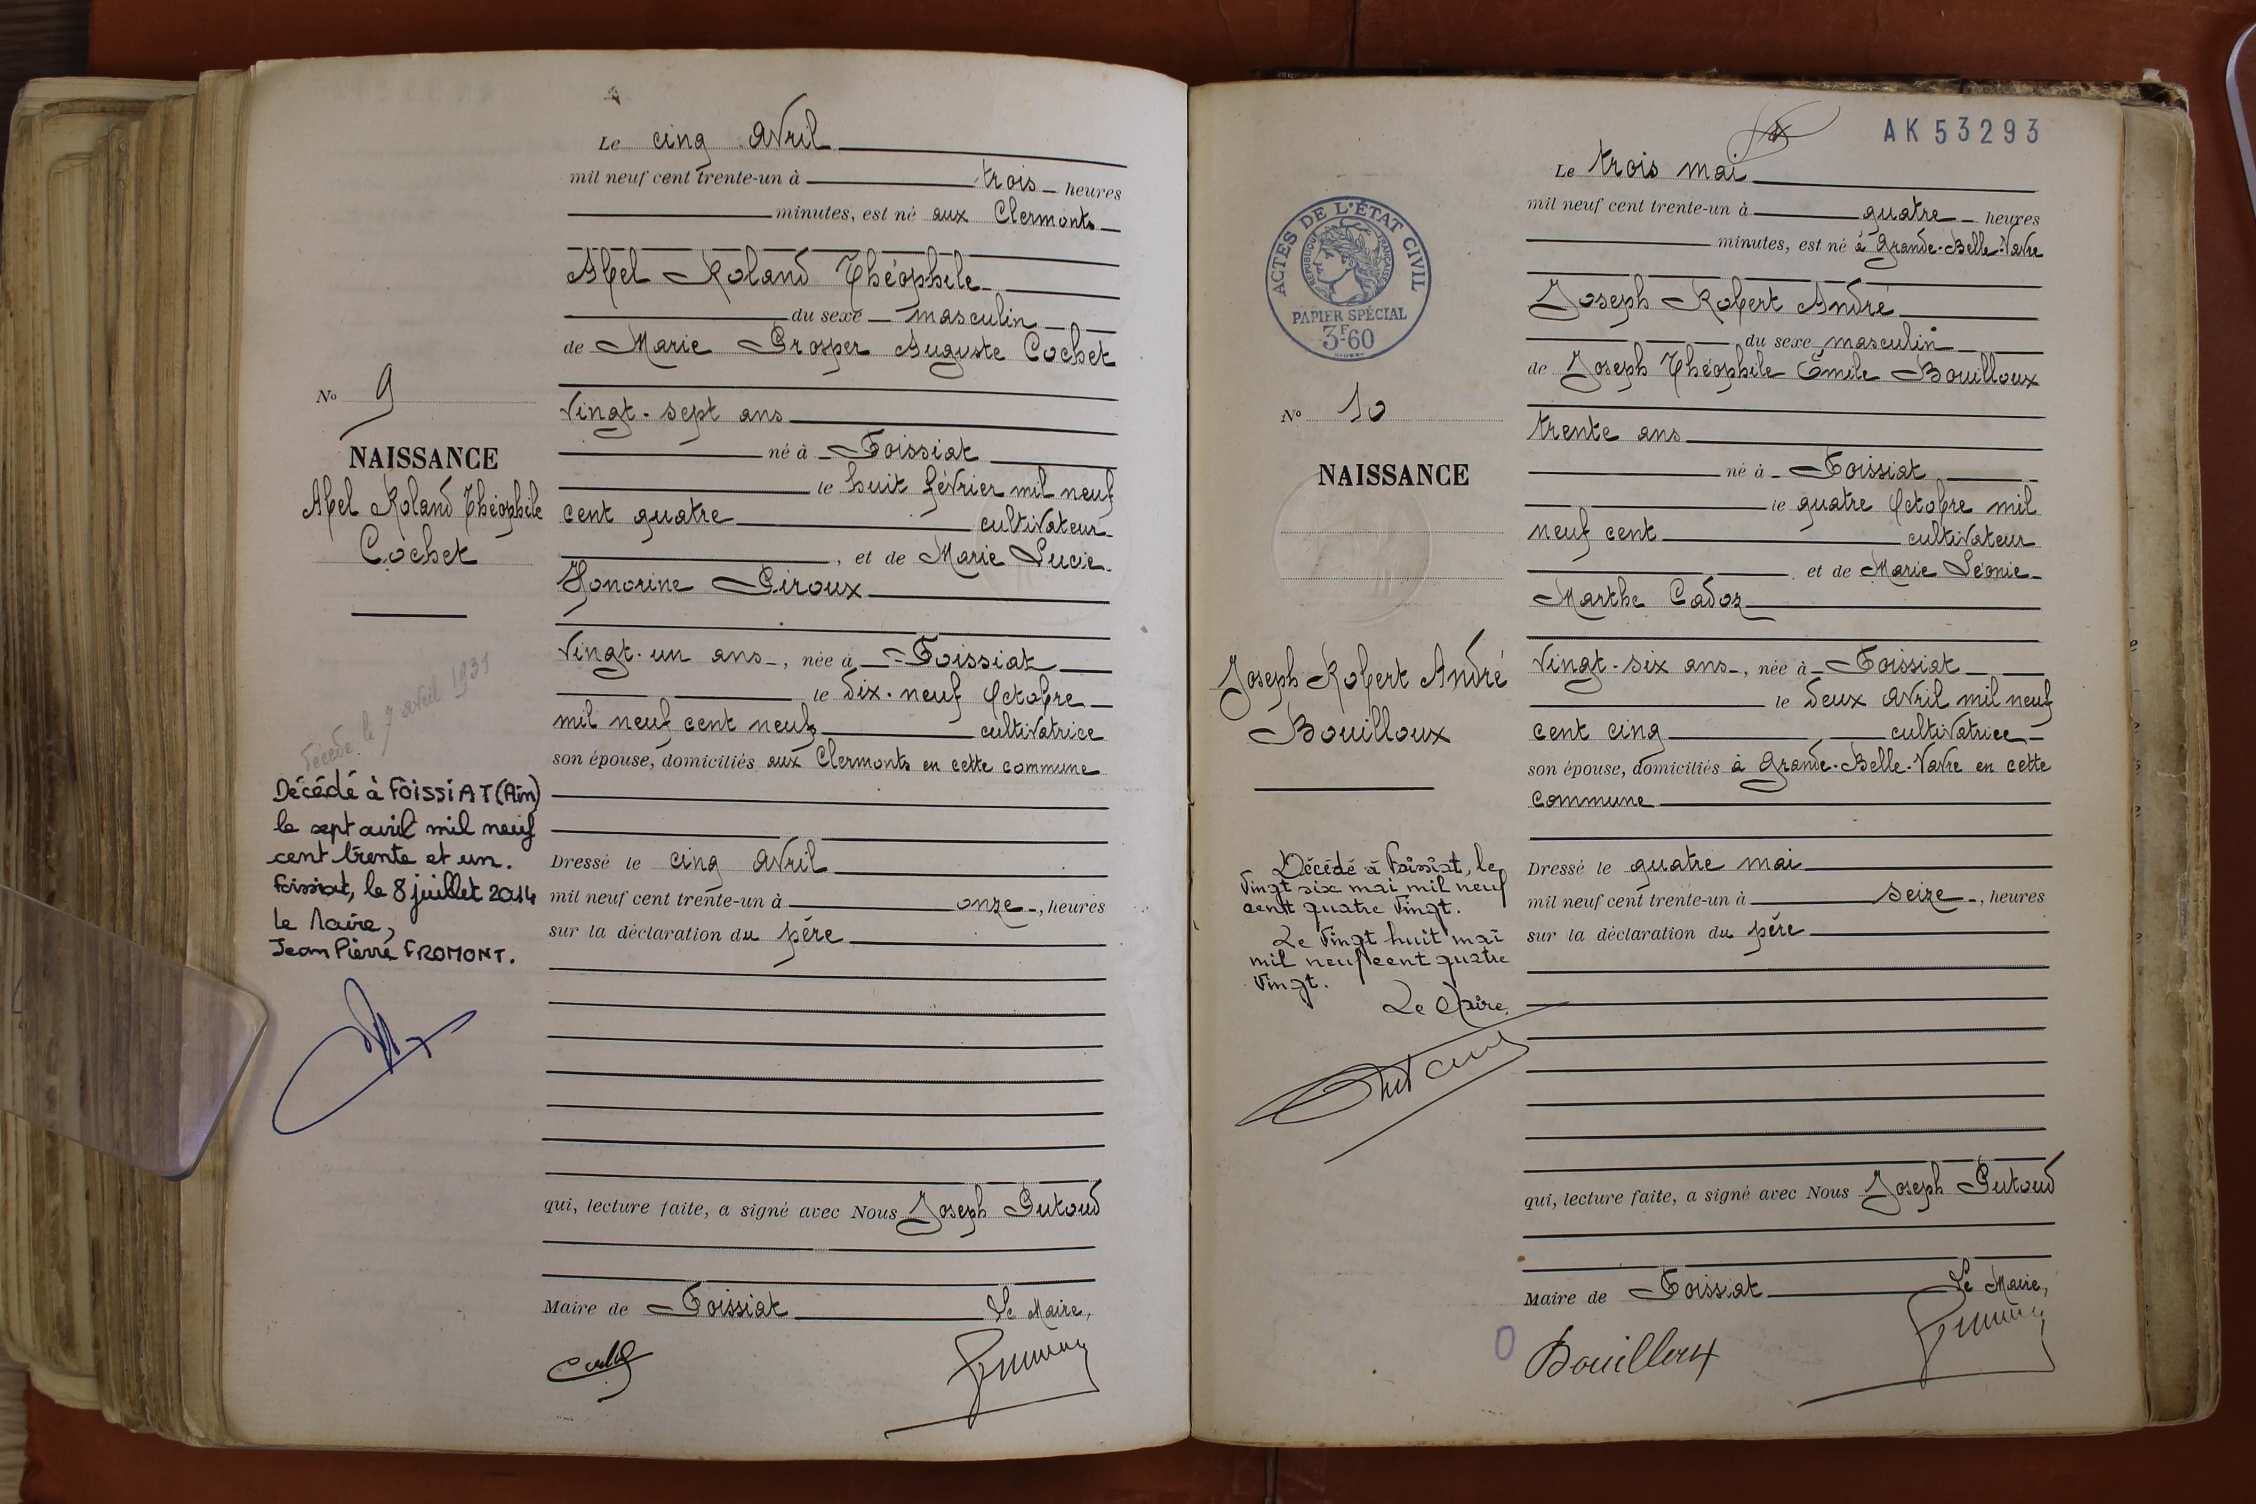 Le cinq Avril
mil neuf cent trente-un à trois heures
minutes, est né aux Clermonts
Abel Roland Théophile
du sexe masculin
de Marie Prosper Auguste Cochet
vingt-sept ans
né à Foissiat
le huit février mil neuf
cent quatre cultivateur
, et de Marie Lucie
Honorine Piroux
vingt-un ans, née à Foissiat
le dix-neuf Octobre
mil neuf cent neuf cultivatrice
son épouse, domiciliés aux Clermonts en cette commune
Dressé le cinq Avril
mil neuf cent trente-un à onze, heures
sur la déclaration du père
qui, lecture faite, a signé avec Nous Joseph Putoud
Maire de Foissiat Le Maire,
No 9
NAISSANCE
Abel Roland Théophile
Cochet
décédé le 7 avril 1931
Décédé à FOISSIAT (Ain)
le sept avril mil neuf
cent trente et un.
Foissiat, le 8 juillet 2014
Le Maire,
Jean Pierre FROMONT.
AK 53293
Le trois mai
mil neuf cent trente-un à quatre heures
minutes, est né à Grande-Belle-Vavre
Joseph Robert André
du sexe masculin
de Joseph Théophile Émile Bouilloux
trente ans
né à Foissiat
le quatre Octobre mil
neuf cent cultivateur
et de Marie Léonie
Marthe Cadoz
vingt-six ans, née à Foissiat
le deux avril mil neuf
cent cinq cultivatrice
son épouse, domiciliés à Grande-Belle-Vavre en cette
commune
Dressé le quatre mai
mil neuf cent trente-un à seize, heures
sur la déclaration du père
qui, lecture faite, a signé avec Nous Joseph Putoud
Maire de Foissiat Le Maire,
Bouilloux
ACTES DE L'ÉTAT CIVIL
RÉPUBLIQUE FRANÇAISE
PAPIER SPÉCIAL
3F60
No 10
NAISSANCE
Joseph Robert André
Bouilloux
Décédé à Foissiat, le
vingt six mai mil neuf
cent quatre vingt.
Le vingt huit mai
mil neuf cent quatre
vingt.
Le Maire,